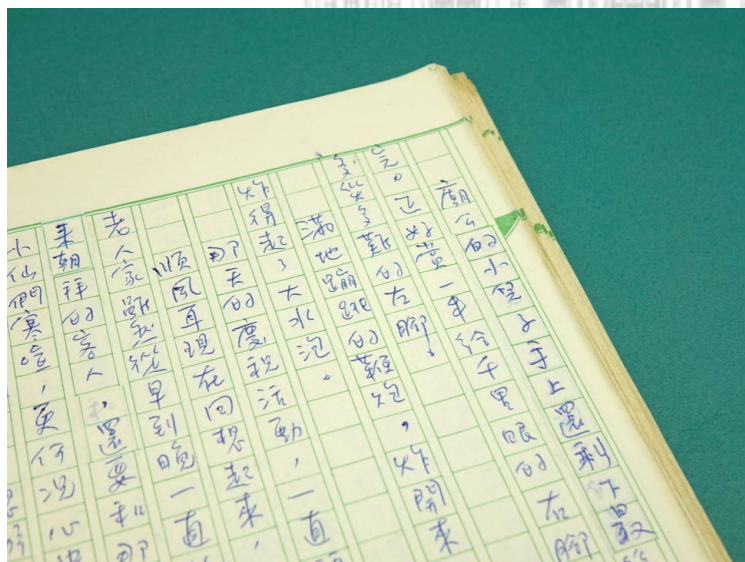 廟公的小子手上還剩下最
完。正好賞一串給千里眼的右腳
多災多難的左腳！
滿地蹦跳的鞭炮，炸開來
炸得起了大水泡。
那天的慶祝活動，一直
順風耳現在回想起來，
老人家雖然從早到晚一直
來朝拜的客人，還要和那
小仙們寒喧，更何況心